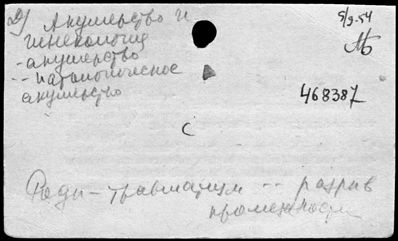 2) Акушерство и
гинекология
- акушерство
-- патологическое
акушерство
5/9-54
468387
С
Роды - травматизм -- разрыв
промежности